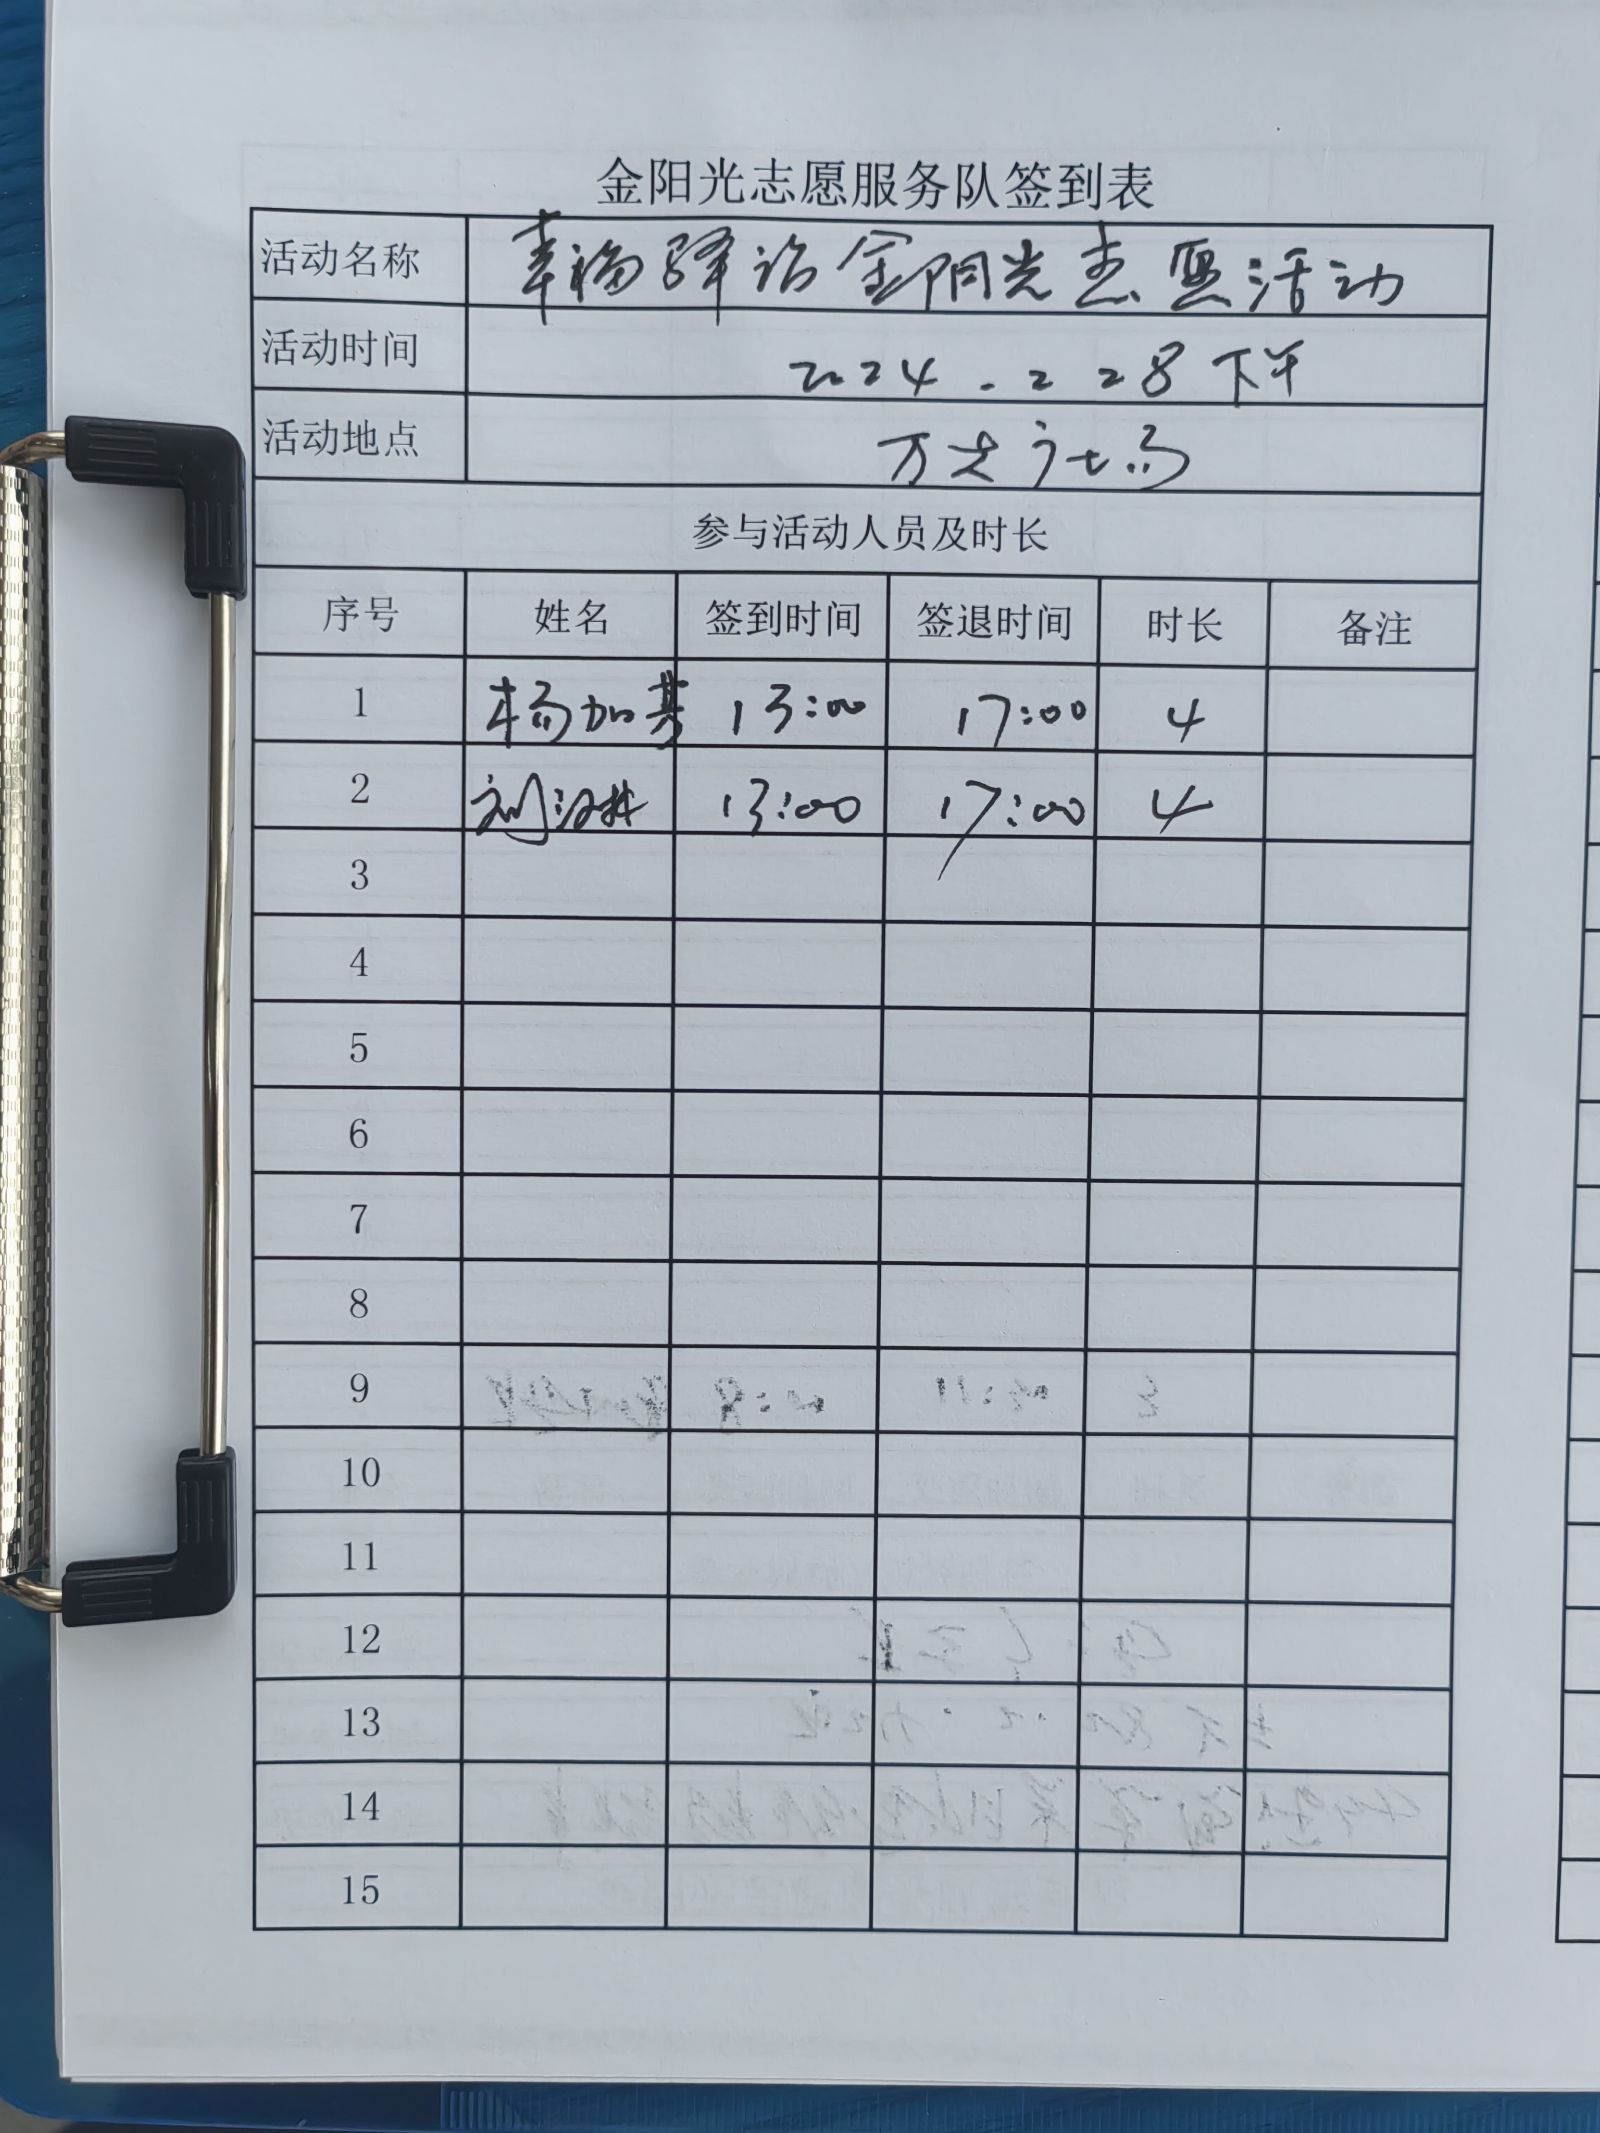 金阳光志愿服务队签到表
活动名称 幸福驿站金阳光志愿活动
活动时间 2024.2 28 下午
活动地点 万达广场
参与活动人员及时长
序号 姓名 签到时间 签退时间 时长 备注
1 杨加 13:00 17:00 4
2 刘汉林 13:00 17:00 4
3
4
5
6
7
8
9
10
11
12
13
14
15